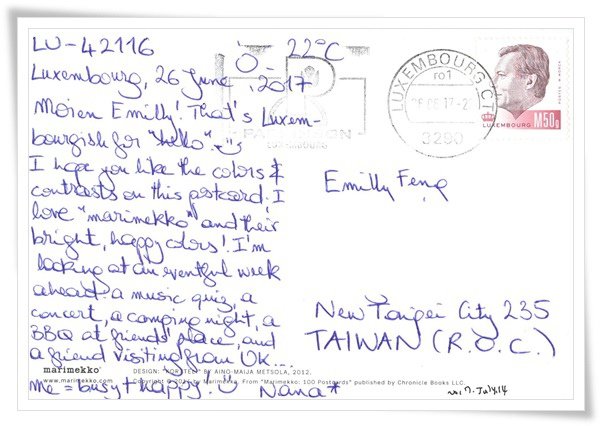 LU-42116
22°C
Luxembourg, 26 June, 2017
Moien Emilly! That's Luxem-
bourgish for "hello".
I hope you like the colors &
contrasts on this postcard. I
love "marimekko" and their
bright, happy colors! I'm
looking at an eventful week
ahead: a music quiz, a
concert, a camping night, a
BBQ at friends' place, and
a friend visiting from UK...
me = busy + happy. Nana*
marimekko
www.marimekko.com
DESIGN: BY AINO-MAIJA METSOLA, 2012.
Copyright © by Marimekko. From "Marimekko: 100 Postcards" published by Chronicle Books LLC.
LUXEMBOURG CT
ro1
3200
LUXEMBOURG
M50g
Emilly Feng
New Taipei City 235
TAIWAN (R.O.C.)
2017.July.14